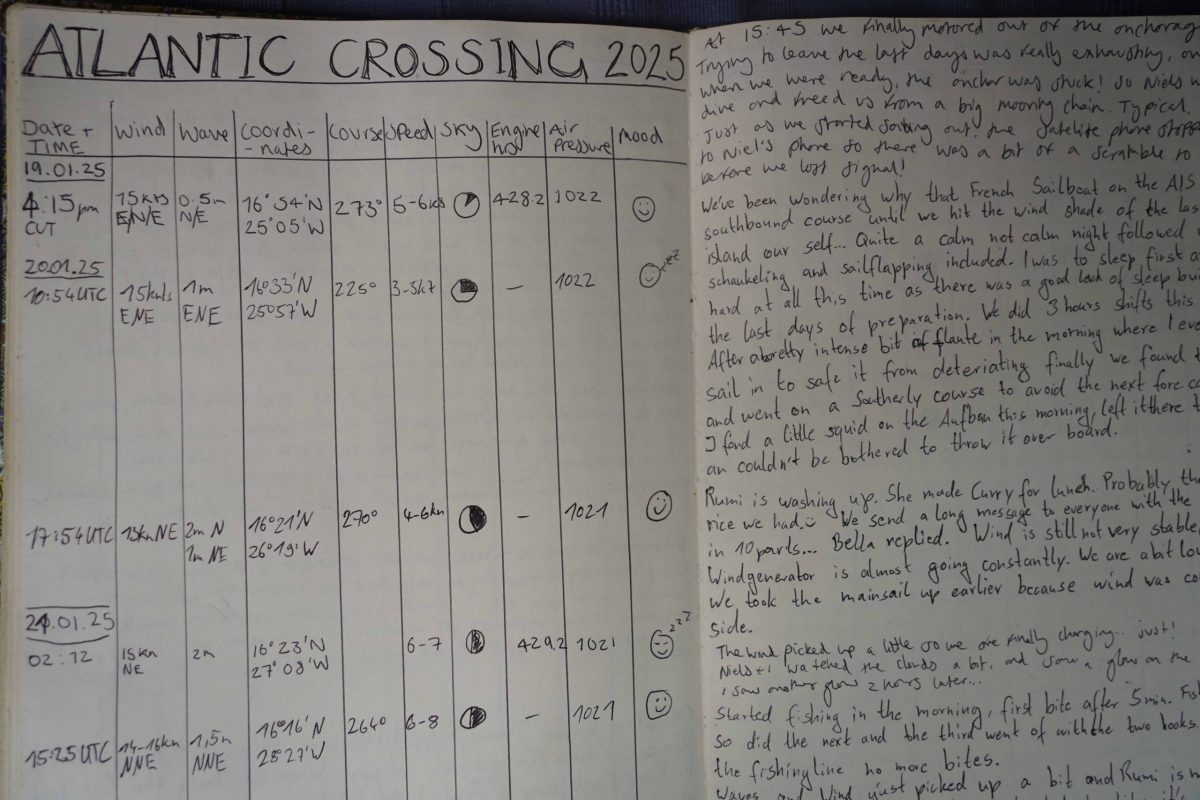 ATLANTIC CROSSING 2025
Date + TIME Wind Wave Coordi-nates Course Speed Sky Engine hrs Air Pressure Mood
19.01.25
4:15pm 15kts 0.5m 16°54'N 273° 5-6kts 428.2 1022
CUT E/N/E N/E 25°05'W
20.01.25
10:54UTC 15knts 1m 16°33'N 225° 3-5kt — 1022 zzz
ENE ENE 25°57'W
17:54UTC 15kn NE 2m N 16°21'N 270° 4-6kn — 1021
1m NE 26°19'W
21.01.25
02:12 15kn 2m 16°23'N 6-7 429.2 1021 zzz
NE 27°08'W
15:25UTC 14-16kn 1,5m 16°16'N 264° 6-8 — 1021
NNE NNE 28°27'W
At 15:45 we finally motored out of the anchorag
Trying to leave the last days was really exhausting,
when we were ready, the anchor was stuck! So Niels
dive and freed us from a big mooring chain. Typical.
Just as we started sailing out, the satelite phone stopp
to Niel's phone so there was a bit of a scramble to
before we lost signal!
We've been wondering why that French Sailboat on the AIS
southbound course until we hit the wind shade of the las
island our self... Quite a calm not calm night followed
schaukeling and sailflapping included. I was to sleep first
hard at all this time as there was a good lack of sleep
the last days of preparation. We did 3 hours shifts this
After a pretty intense bit of flaute in the morning where I
sail in to safe it from deteriating finally we found
and went on a Southerly course to avoid the next fore
I fond a little squid on the Aufbau this morning, left it there
an couldn't be bothered to throw it over board.
Rumi is washing up. She made Curry for lunch. Probably
rice we had. We send a long message to everyone with the
in 10 parts... Bella replied. Wind is still not very stable,
Windgenerator is almost going constantly. We are a bit
We took the mainsail up earlier because wind was
side.
The wind picked up a little so we are finally charging.. just!
Niels + I watched the clouds a bit, and saw a glow on the
I saw another glow 2 hours later...
Started fishing in the morning, first bite after 5min.
So did the next and the third went of with the two hooks.
the fishingline no more bites.
Waves and Wind just picked up a bit and Rumi is